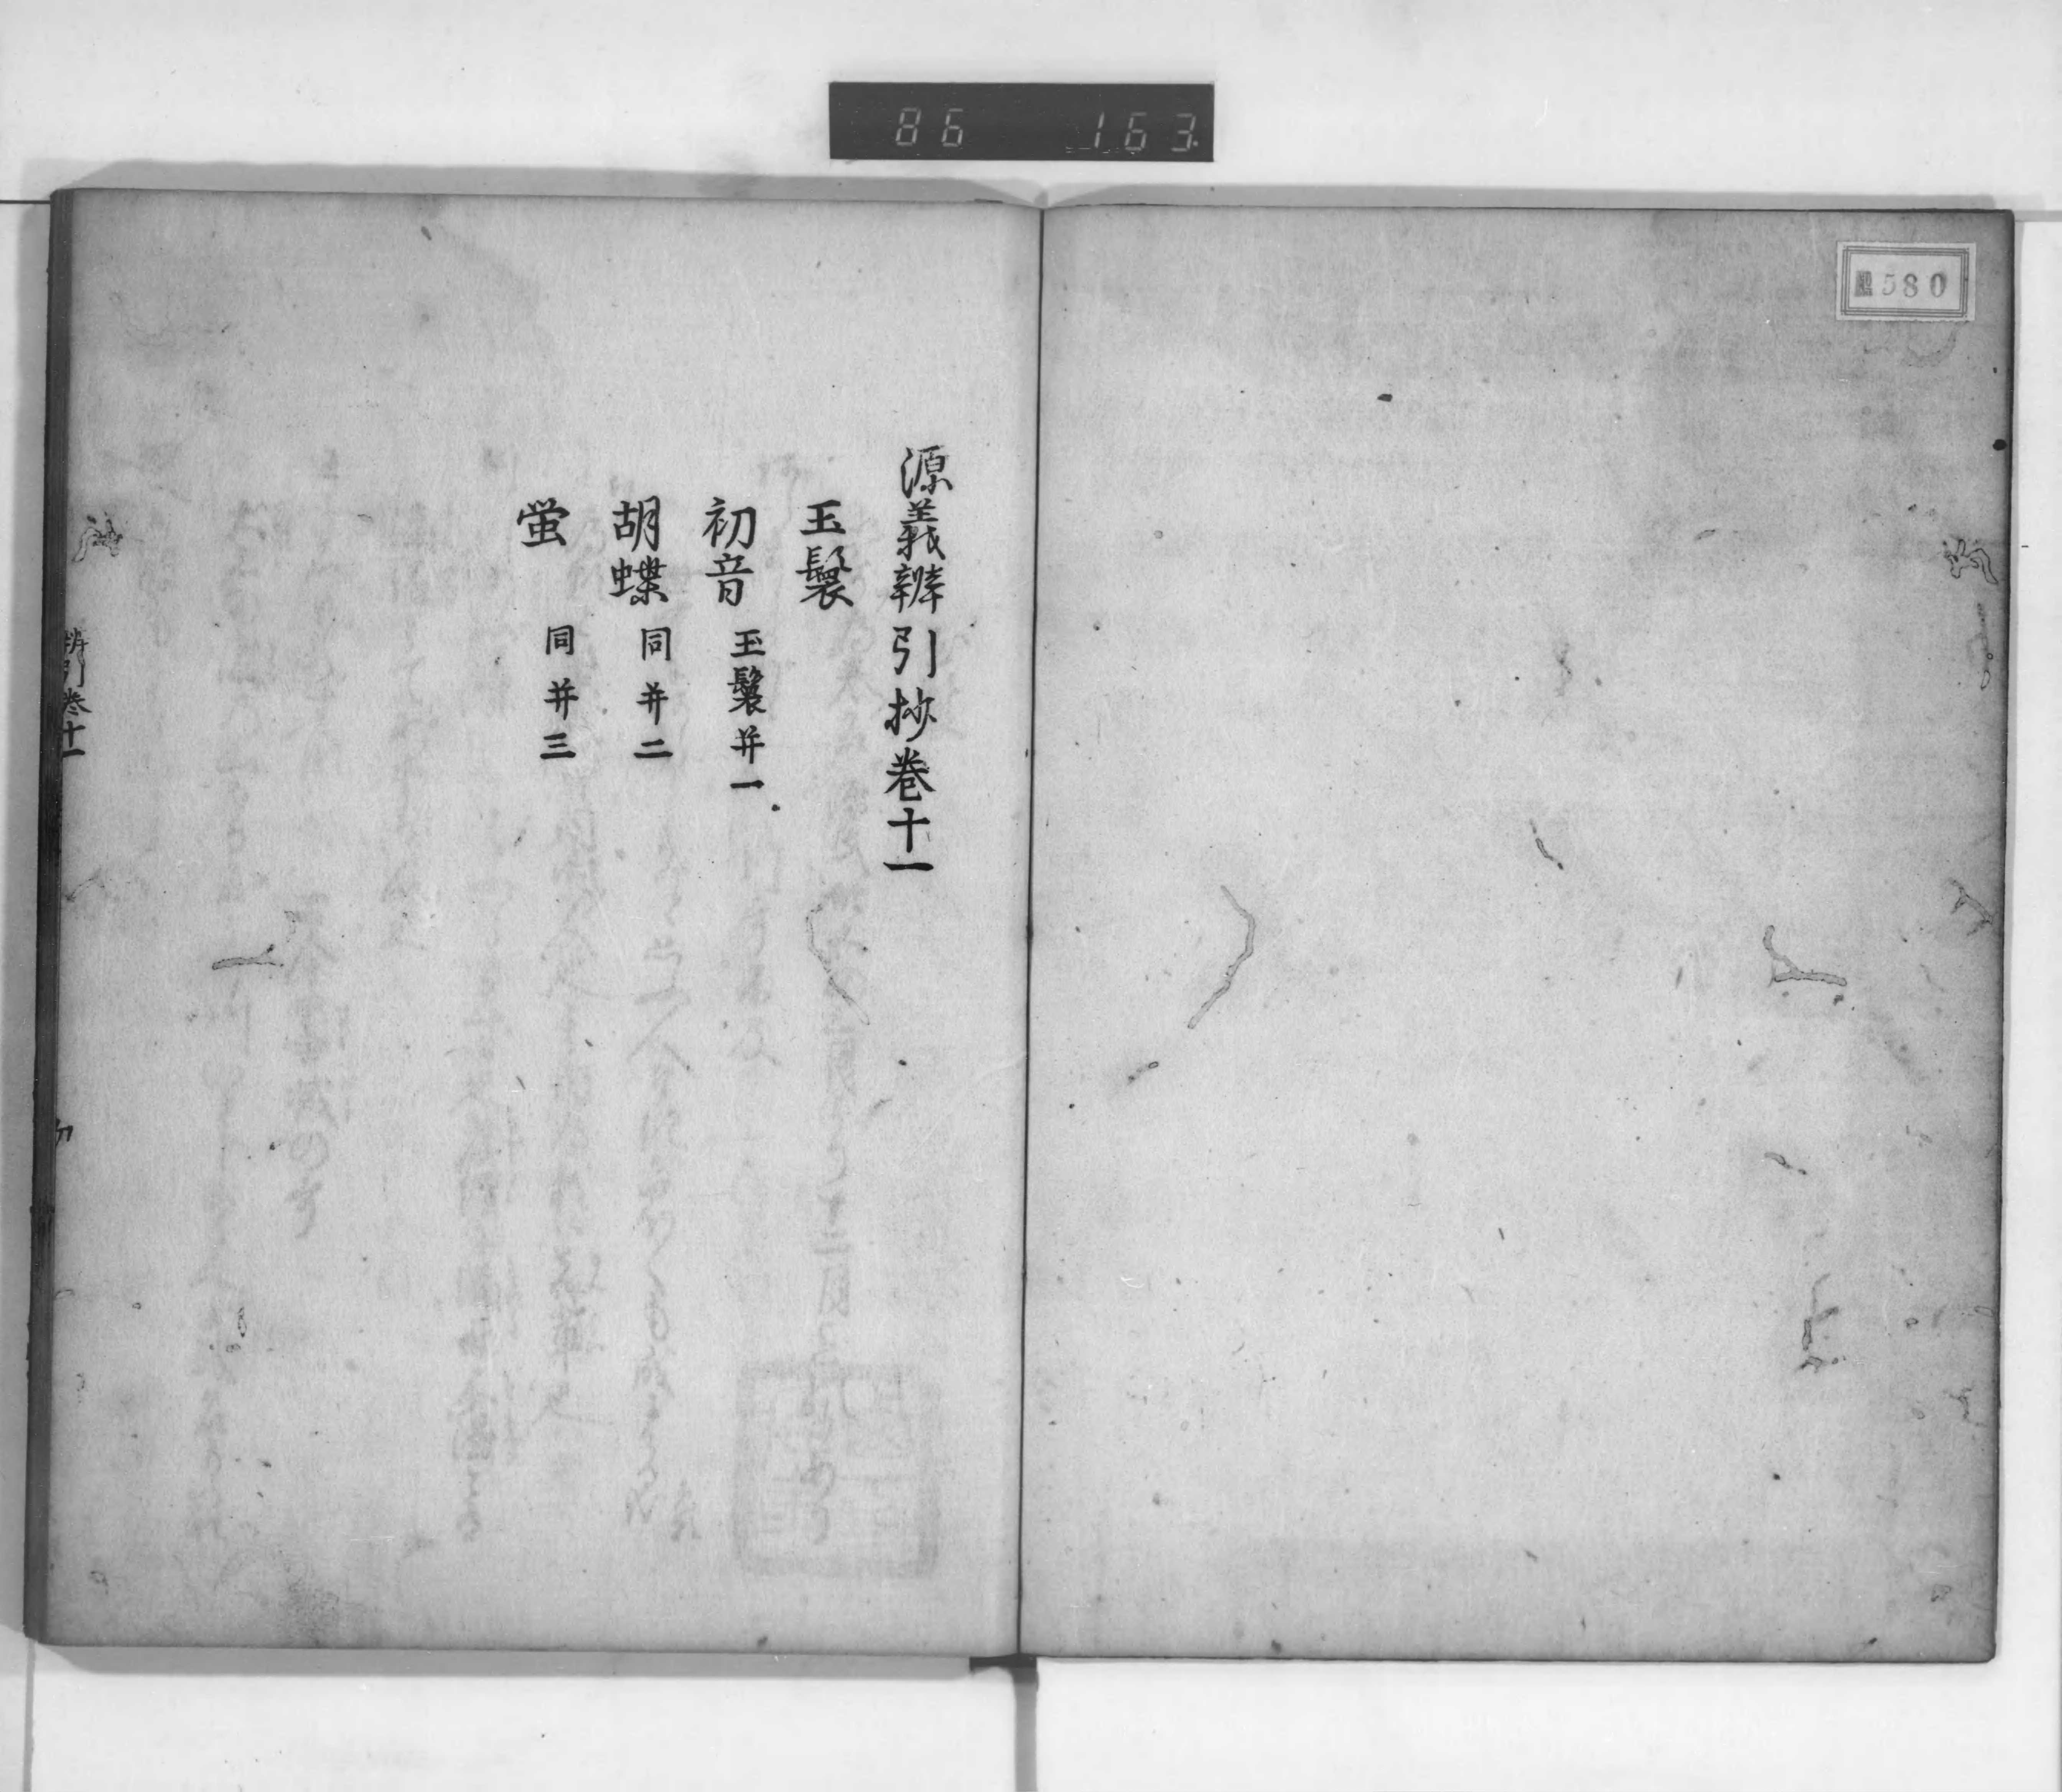 86 163
580
源義辨引抄巻十一
玉鬘
初音 玉鬘并一
胡蝶 同并二
蛍 同并三
辨引巻十一